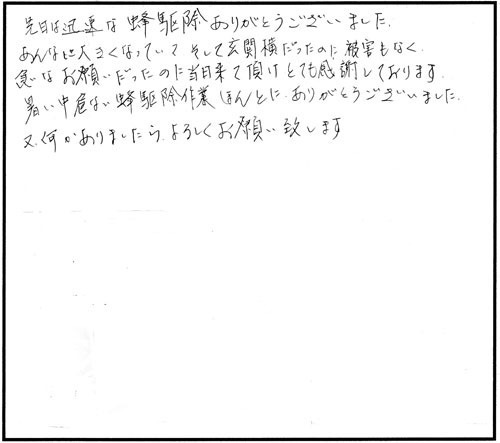 先日は迅速な蜂駆除ありがとうございました。
あんなに大きくなっていて そして玄関横だったのに被害もなく、
急なお願いだったのに当日来て頂けとても感謝しております。
暑い中危ない蜂駆除作業ほんとに、ありがとうございました。
又、何かありましたら、よろしくお願い致します